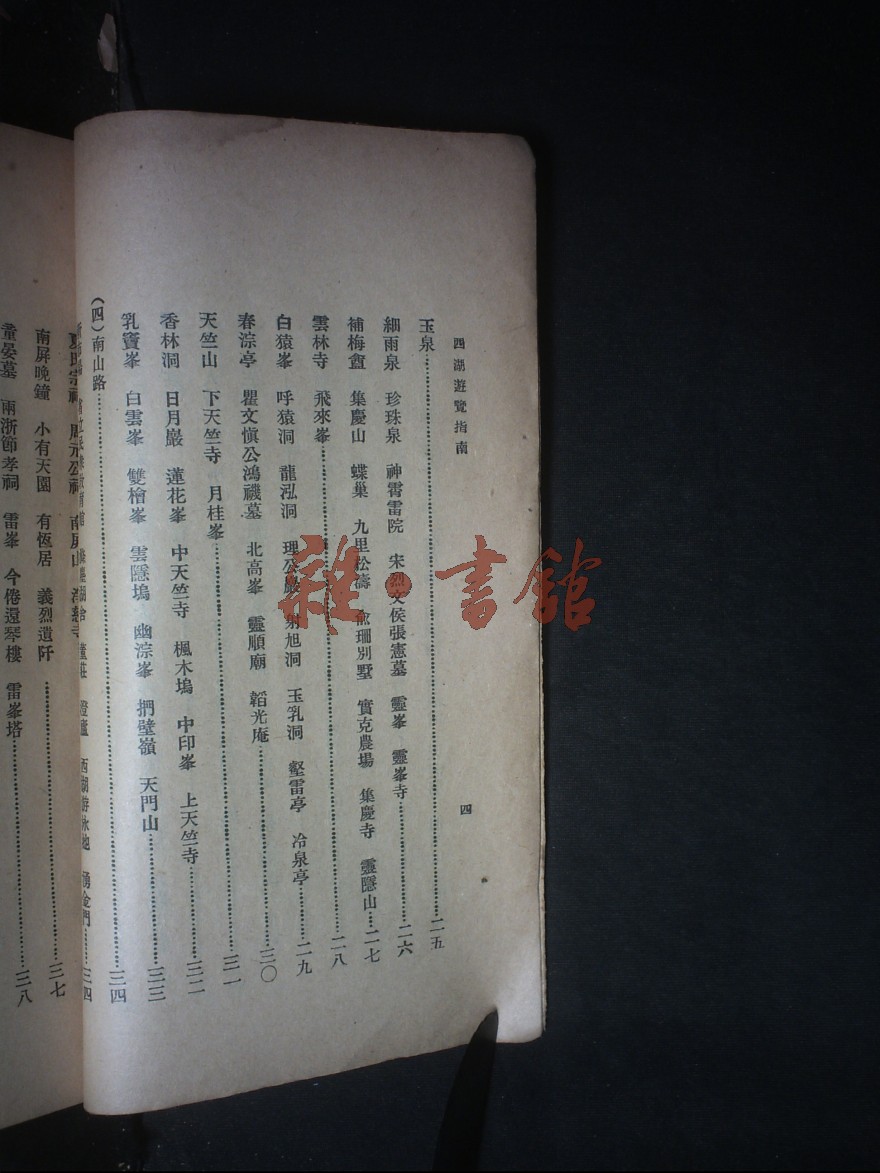 西湖遊覽指南
四
玉泉……二五
細雨泉　珍珠泉　神霄雷院　宋烈文侯張憲墓　靈峯　靈峯寺……二六
補梅盦　集慶山　蝶巢　九里松濤　俞珊別墅　實克農場　集慶寺　靈隱山……二七
雲林寺　飛來峯……二八
白猿峯　呼猿洞　龍泓洞　理公巖　射旭洞　玉乳洞　壑雷亭　冷泉亭……二九
春淙亭　瞿文愼公鴻禨墓　北高峯　靈順廟　韜光庵……三〇
天竺山　下天竺寺　月桂峯……三一
香林洞　日月巖　蓮花峯　中天竺寺　楓木塢　中印峯　上天竺寺……三二
乳竇峯　白雲峯　雙檜峯　雲隱塢　幽淙峯　捫壁嶺　天門山……三三
(四)南山路……三四
董莊　澄廬　西湖游泳池　湧金門……三四
夏氏宗祠　周元公祠　南屏山　淨慈寺
南屏晚鐘　小有天園　有恆居　義烈遺阡……三七
董晏墓　兩浙節孝祠　雷峯　今倦還琴樓　雷峯塔……三八
雜·書館